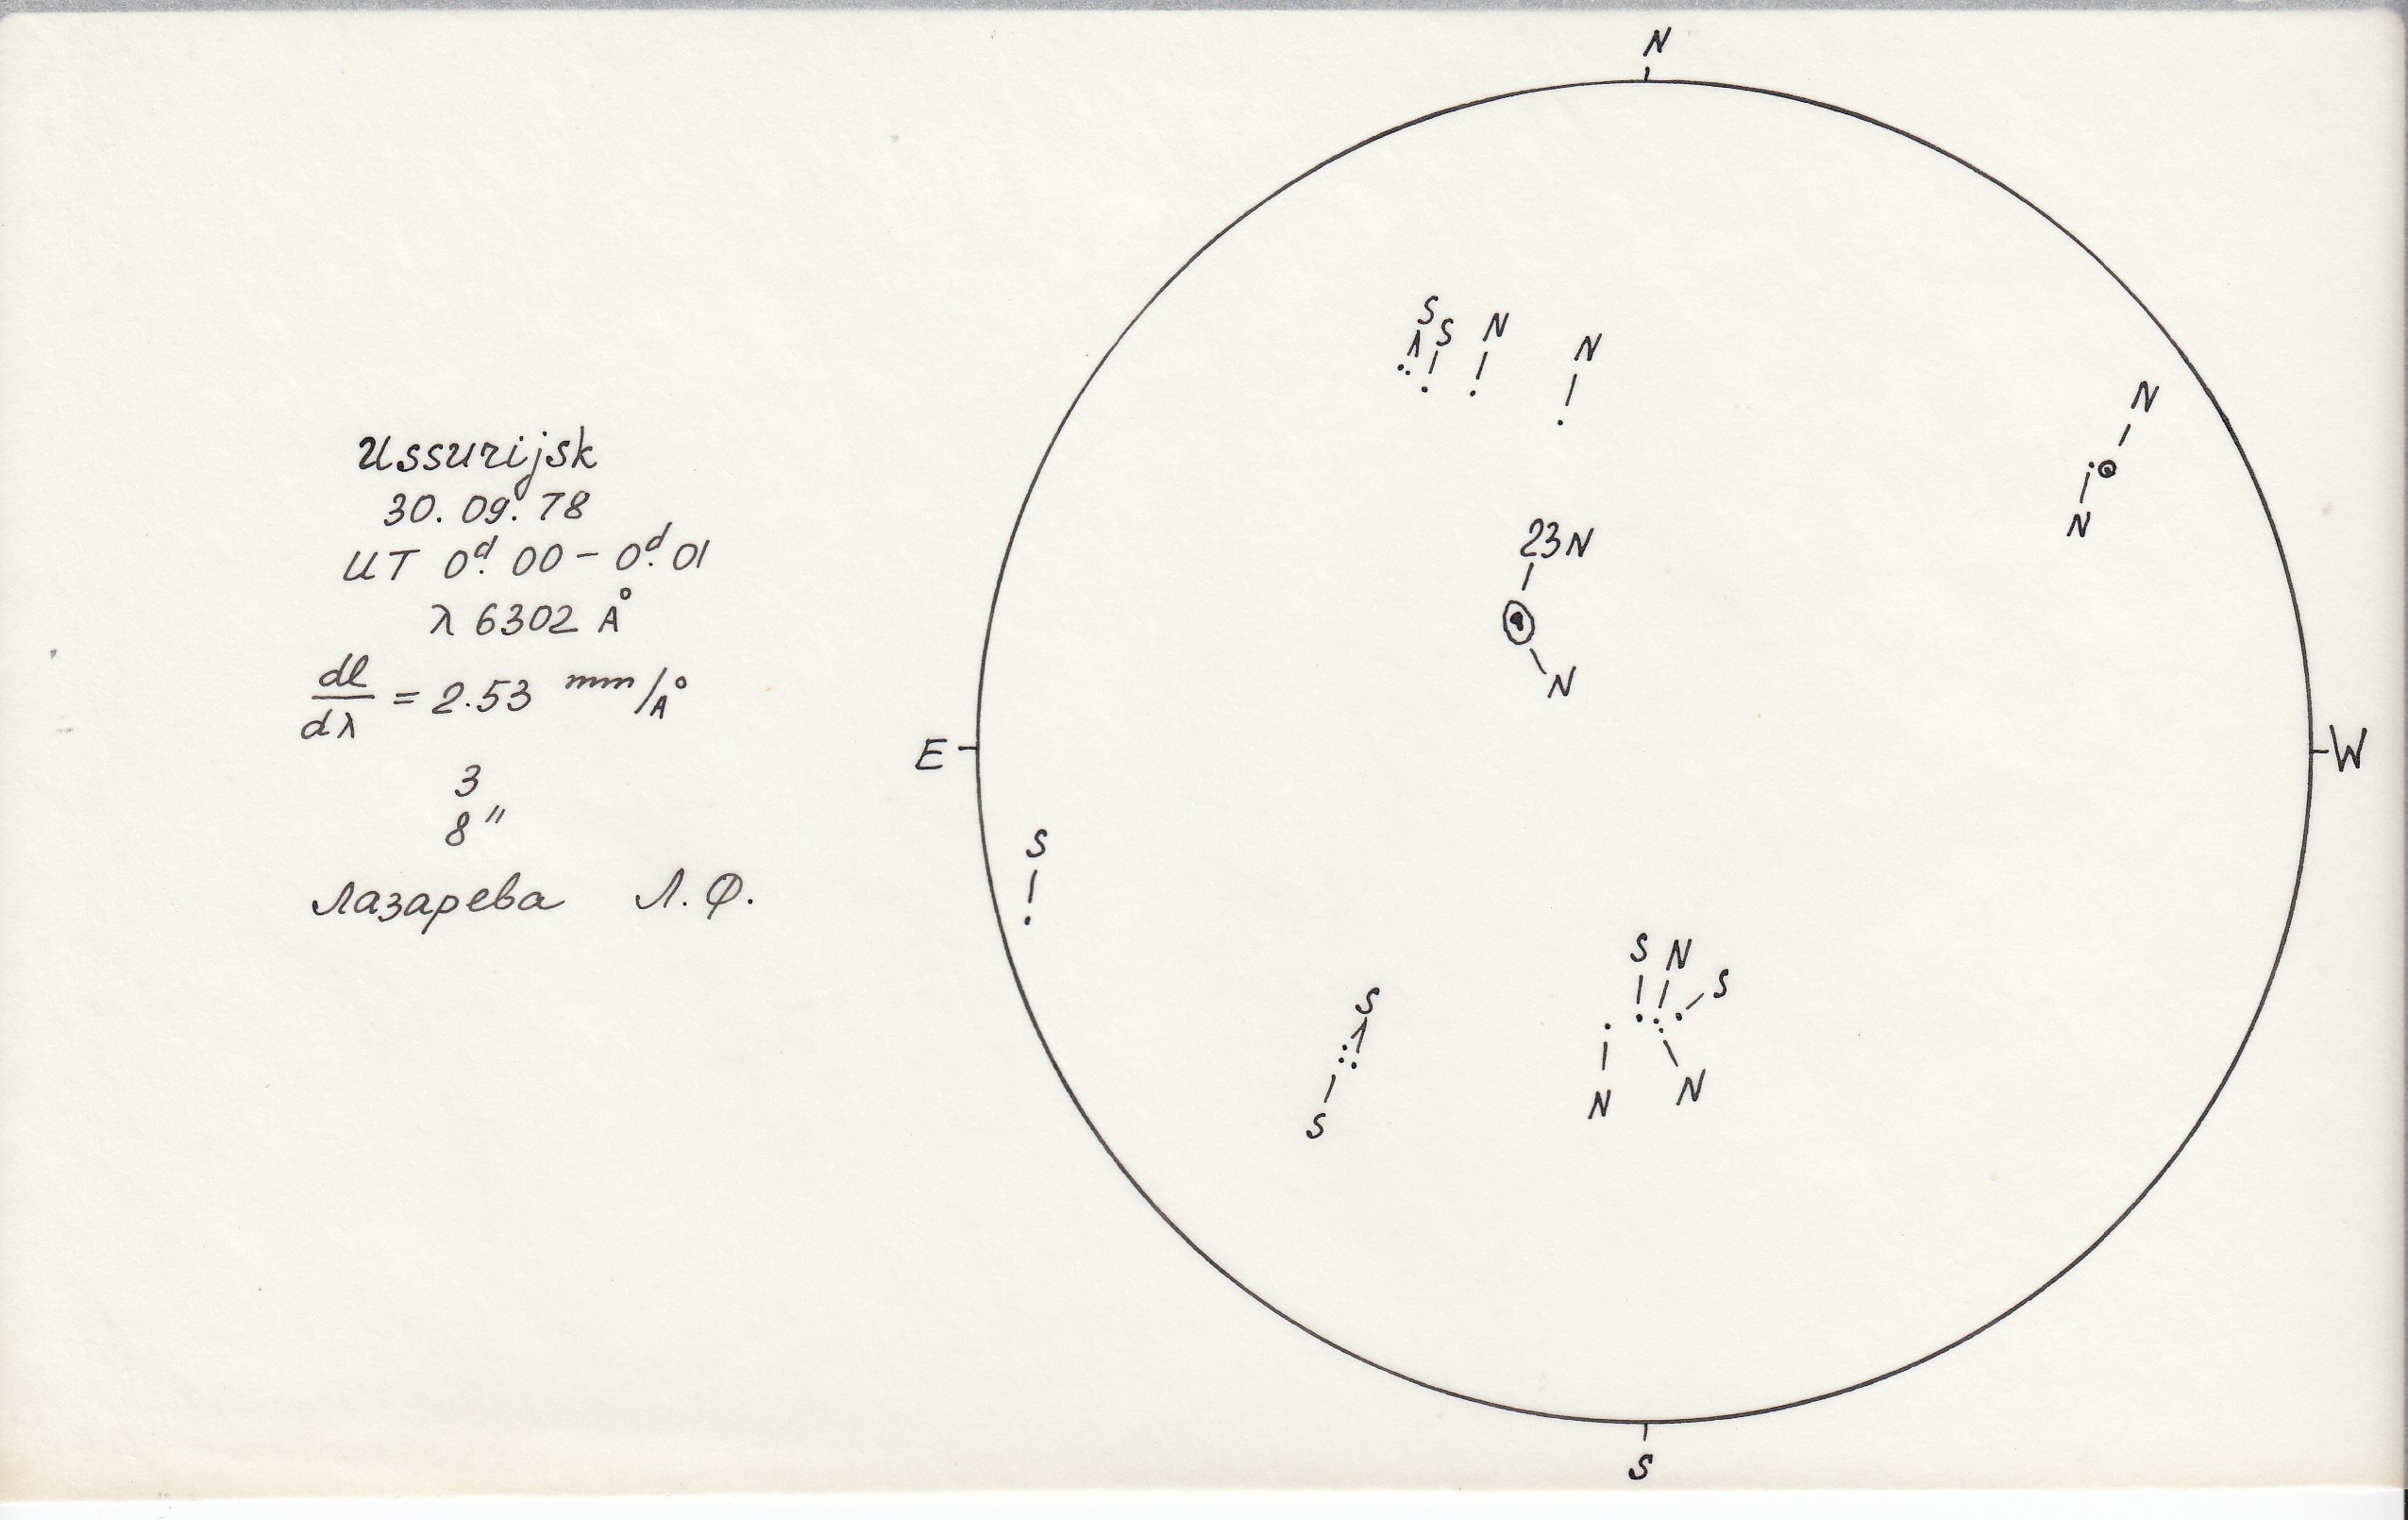 Ussurijsk
30. 09. 78
UT 0d. 00 – 0d. 01
λ 6302 Å
dl/dλ = 2.53 mm/Å
3
8"
Лазарева Л. Ф.
N
S S N N
N
N
23N
N
E
W
S
S N S
S
N N
S
S